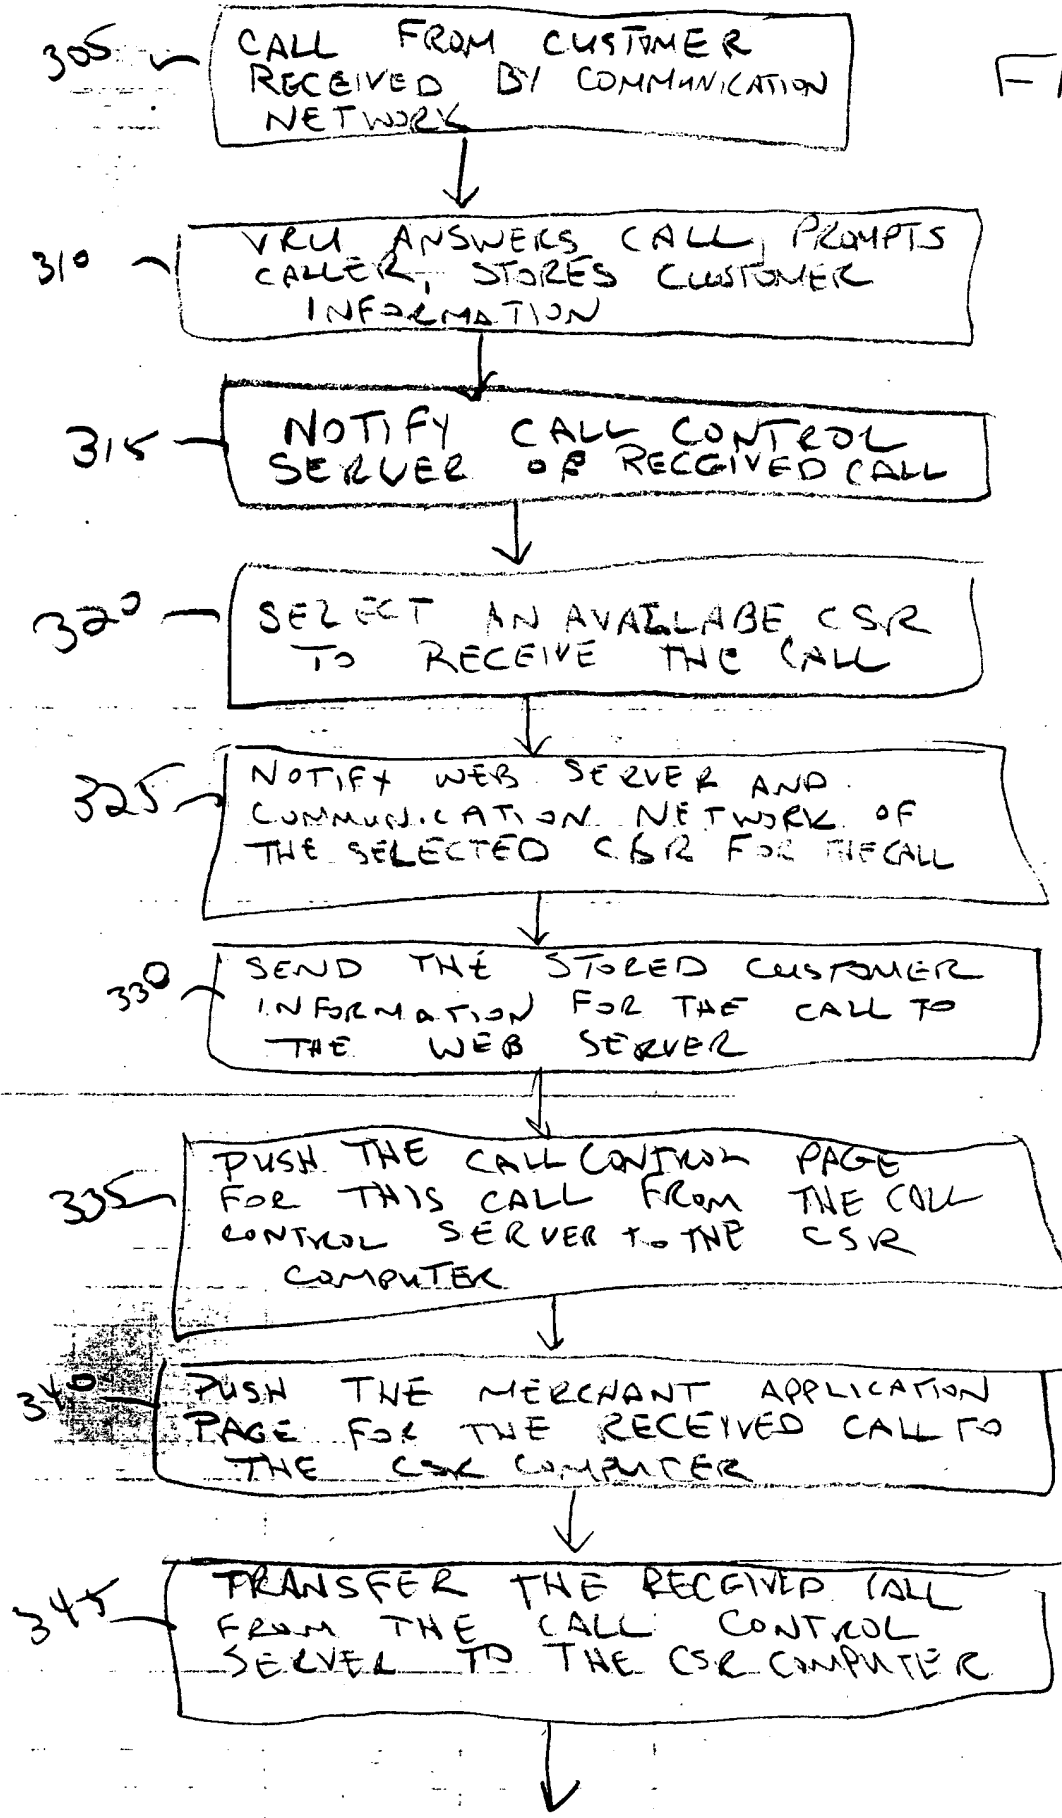 FI
305
CALL FROM CUSTOMER
RECEIVED BY COMMUNICATION
NETWORK
310
VRU ANSWERS CALL, PROMPTS
CALLER, STORES CUSTOMER
INFORMATION
315
NOTIFY CALL CONTROL
SERVER OF RECEIVED CALL
320
SELECT AN AVAILABE CSR
TO RECEIVE THE CALL
325
NOTIFY WEB SERVER AND
COMMUNICATION NETWORK OF
THE SELECTED CSR FOR THE CALL
330
SEND THE STORED CUSTOMER
INFORMATION FOR THE CALL TO
THE WEB SERVER
335
PUSH THE CALL CONTROL PAGE
FOR THIS CALL FROM THE CALL
CONTROL SERVER TO THE CSR
COMPUTER
340
PUSH THE MERCHANT APPLICATION
PAGE FOR THE RECEIVED CALL TO
THE CSR COMPUTER
345
TRANSFER THE RECEIVED CALL
FROM THE CALL CONTROL
SERVER TO THE CSR COMPUTER